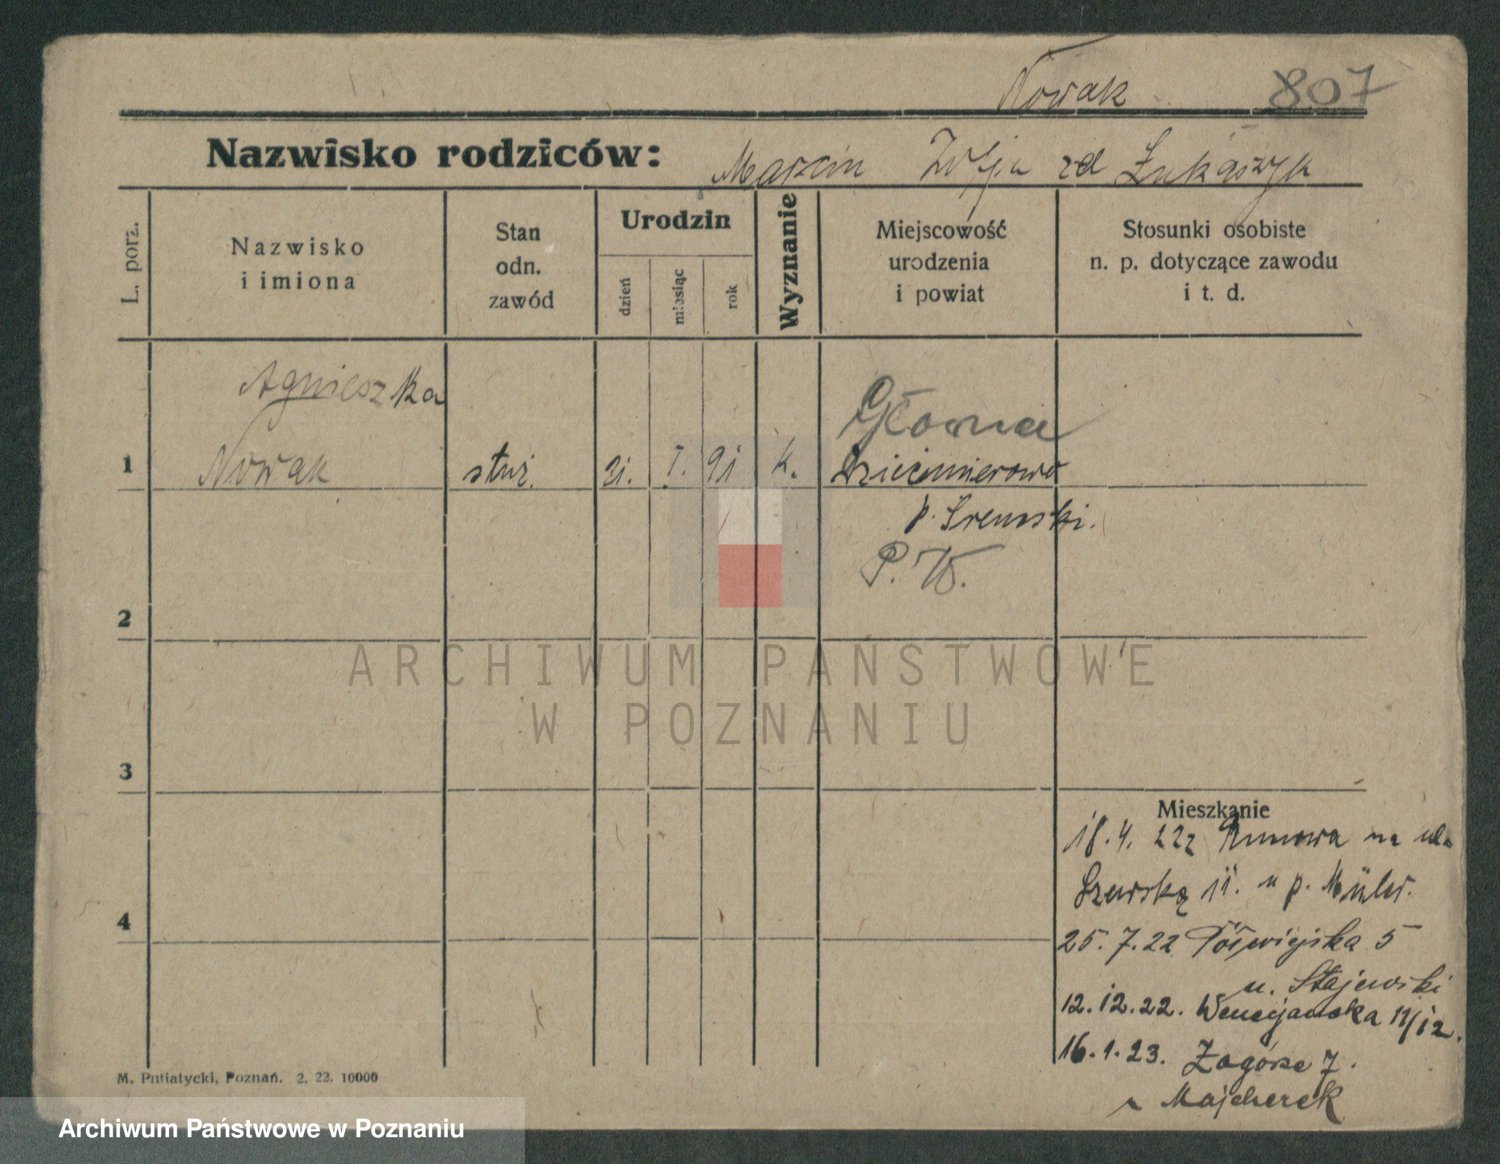 Nowak 807
Nazwisko rodziców: Marcin Zofja zd Łukaszyk
L. porz.
Nazwisko
i imiona
Stan
odn.
zawód
Urodzin
dzień
miesiąc
rok
Wyznanie
Miejscowość
urodzenia
i powiat
Stosunki osobiste
n. p. dotyczące zawodu
i t. d.
Agnieszka
Główna
1 Nowak służ. 21. I. 91 k.
p. Śremski.
2
ARCHIWUM PAŃSTWOWE
W POZNANIU
3
Mieszkanie
18.4. 22 na
11. u p.
4
25. 7. 22 5
u. Stajewski
12. 12. 22. Wenecjańska 11/12.
16. 1. 23. Zagórze 7.
Majcherek
M. Putiatycki, Poznań. 2. 22. 10000
Archiwum Państwowe w Poznaniu